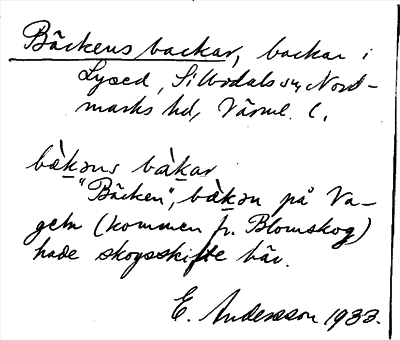 Bäckens backar, backar i
Lysed, Sillbodals sn, Nord-
marks hd, Värml. l.
bə̀kəns bàkar
"Bäcken", bə̀kən på Va-
geln (kommen fr. Blomskog)
hade skogsskifte här.
E. Andersson 1933.